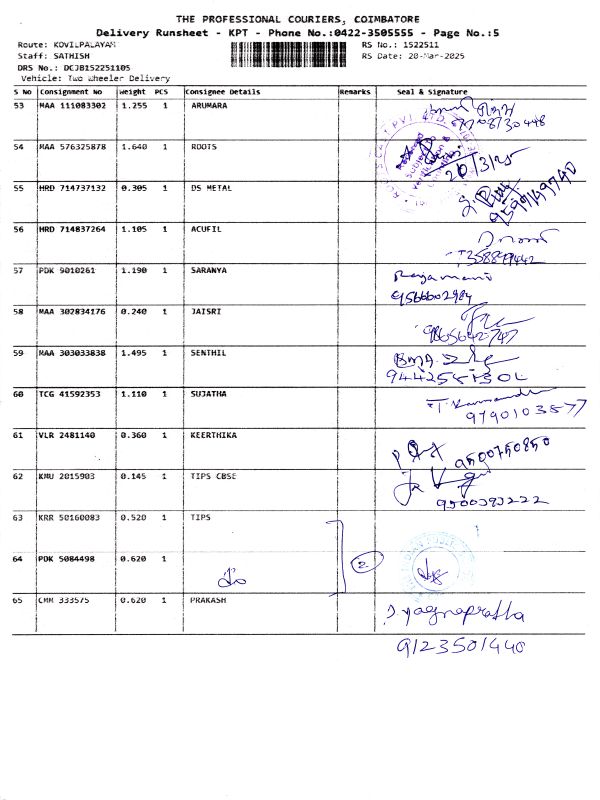 THE PROFESSIONAL COURIERS, COIMBATORE
Delivery Runsheet - KPT - Phone No.:0422-3505555 - Page No.:5
Route: KOVILPALAYAM RS No.: 1522511
Staff: SATHISH RS Date: 20-Mar-2025
DRS No.: DCJB152251105
Vehicle: Two Wheeler Delivery
S No Consignment No Weight PCS Consignee Details Remarks Seal & Signature
53 MAA 111083302 1.255 1 ARUMARA
54 MAA 576325878 1.640 1 ROOTS
20/3/25
55 HRD 714737132 0.305 1 DS METAL
56 HRD 714837264 1.105 1 ACUFIL
57 PDK 9010261 1.190 1 SARANYA
9566602984
58 MAA 302834176 0.240 1 JAISRI
59 MAA 303033838 1.495 1 SENTHIL
60 TCG 41592353 1.110 1 SUJATHA
9790103877
61 VLR 2481140 0.360 1 KEERTHIKA
9500750850
62 KMU 2015903 0.145 1 TIPS CBSE
9500393222
63 KRR 50160083 0.520 1 TIPS
64 PDK 5084498 0.620 1
2
65 CMM 333575 0.620 1 PRAKASH
9123501440